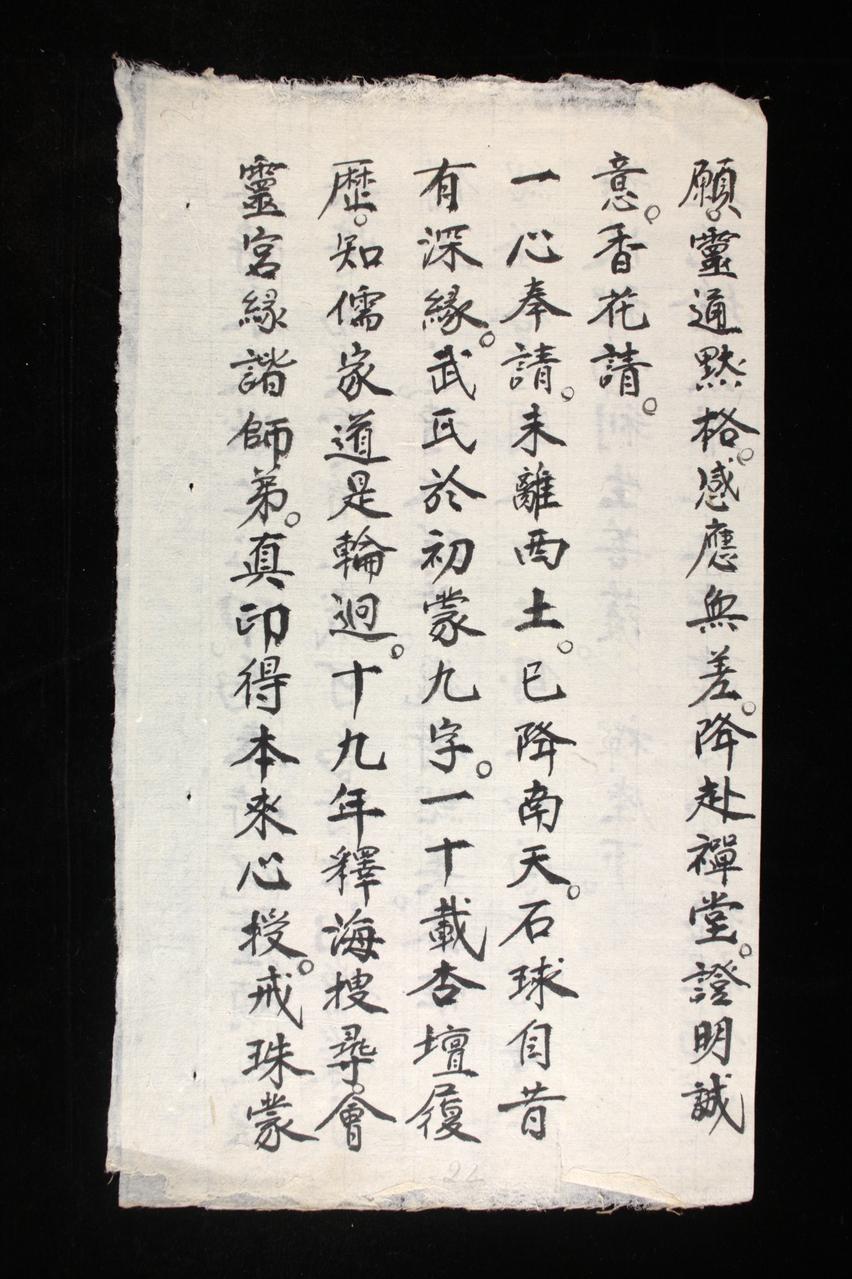 願。靈通黙格。感應無差。降赴禪堂。證明誠
意。香花請。
一心奉請。未離西土。已降南天。石球自昔
有深緣。武氏於初蒙九字。一十載杏壇履
歷。知儒家道是輪迴。十九年釋海搜尋。會
靈宮緣諧師弟。真印得本來心授。戒珠蒙
24